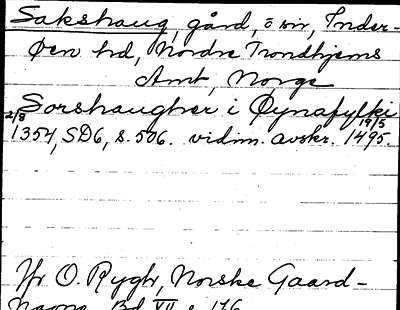 Sakshaug, gård, ö sn, Inder-
Øen hd, Nordre Trondhjems
Amt, Norge
Sorshaugher i Øynafylki
2/8 1354, SD6, s. 506. vidim. avskr. 19/5 1495.
Jfr O. Rygh, Norske Gaard-
Navne, Bd VII s. 176